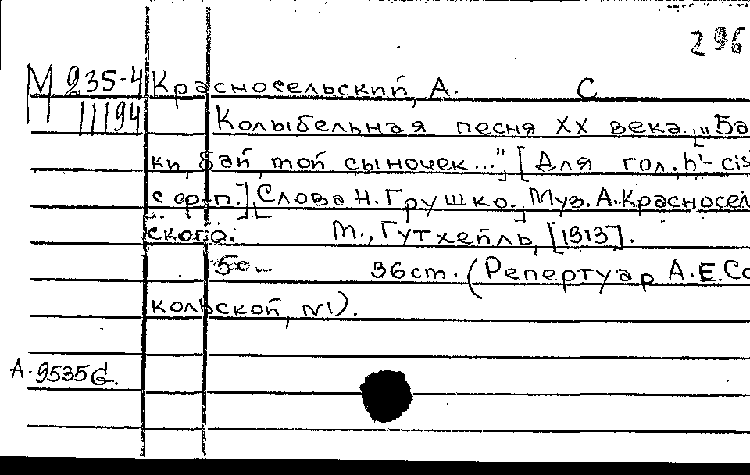 296
М 235-4 Красносельский, А. С
11194 Колыбельная песня XX века. „Ба
ки, бай, мой сыночек..." [Для гол. h'- cis
с ф-п.] [Слова Н. Грушко. Муз. А. Красносел
ского.] М., Гутхейль, [1913].
5с 36cm. (Репертуар А.Е. Со
кольской, №1).
А-9535б